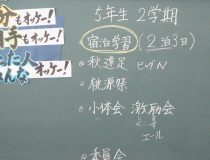 5年生 2学期
宿泊学習(2泊3日)
秋遠足 ビッグN
桃源祭
小体会 激励会
エール
委員会
分もオッケー!
手もオッケー!
た人
んな オッケー!